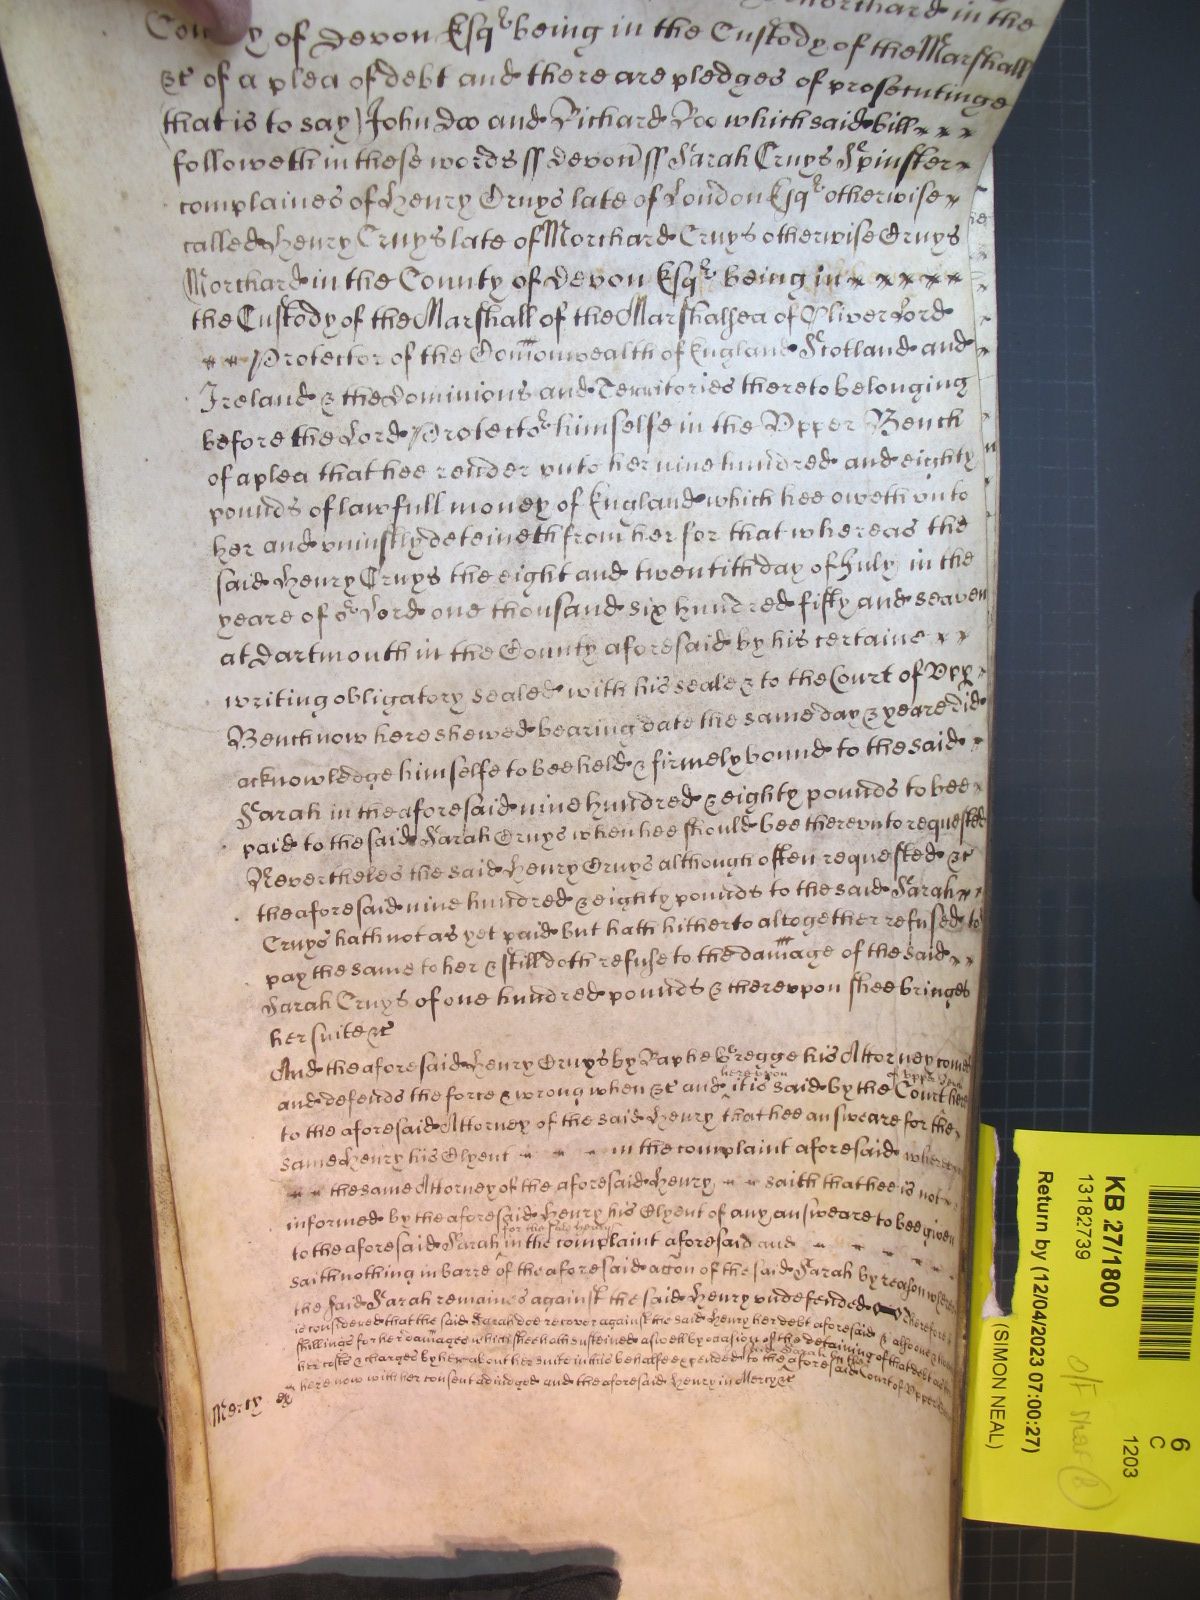 Morchard in the
County of Devon Esqr being in the Custody of the Marshall
&c of a plea of debt and there are pledges of prosecutinge
(that is to say) John Doo and Richard Roo which said bill
followeth in these words ss Devon ss Sarah Cruys Spinster
complaines of Henry Cruys late of London Esqr otherwise
called Henry Cruys late of Morchard Cruys otherwise Cruys
Morchard in the County of Devon Esqr being in
the Custody of the Marshall of the Marshalsea of Oliver Lord
Protector of the Comonwealth of England Scotland and
Ireland & the Dominions and Territories thereto belonging
before the Lord Protector himselfe in the Upper Bench
of a plea that hee render unto her nine hundred and eighty
pounds of lawfull money of England which hee oweth unto
her and uniustly deteineth from her for that whereas the
said Henry Cruys the eight and twentith day of July in the
yeare of or Lord one thousand six hundred fifty and seaven
at Dartmouth in the County aforesaid by his certaine
writing obligatory sealed with his seale & to the Court of Upp
Bench now here shewed bearing date the same day & yeare did
acknowledge himselfe to bee held & firmely bound to the said
Sarah in the aforesaid nine hundred & eighty pounds to bee
paid to the said Sarah Cruys when hee should bee thereunto requested
Nevertheles the said Henry Cruys although often requested &c
the aforesaid nine hundred & eighty pounds to the said Sarah
Cruys hath not as yet paid but hath hitherto altogether refused to
pay the same to her & still doth refuse to the damage of the said
Sarah Cruys of one hundred pounds & thereupon shee bringes
her suite &c
And the aforesaid Henry Cruys by Raphe Gregge his Attorney comes
hereupon of Upper Bench
and defends the force & wrong when &c and it is said by the Court here
to the aforesaid Attorney of the said Henry that hee answeare for the
same Henry his Clyent in the complaint aforesaid whereupon
the same Attorney of the aforesaid Henry saith that hee is not
informed by the aforesaid Henry his Clyent of any answeare to bee given
for the said Henry
to the aforesaid Sarah in the complaint aforesaid and
saith nothing in barre of the aforesaid accon of the said Sarah by reason whereof
the said Sarah remaines against the said Henry undefended Therefore it
is considered that the said Sarah doe recover against the said Henry her debt aforesaid & alsoe
shillings for her damages which shee hath susteined aswell by occasion of the detaining of that debt as for
said Sarah by the
her costs & charges by her about her suite in this behalfe expended to the aforesaid Court of Upper Bench
here now with her consent adiudged and the aforesaid Henry in Mercy &c
Mercy
KB 27/1800
13182739
Return by (12/04/2023 07:00:27)
(SIMON NEAL)
6
C
1203